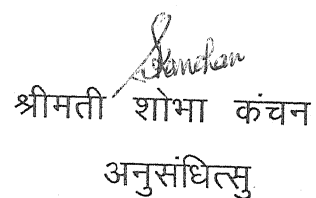 SKanchan
श्रीमती शोभा कंचन
अनुसंधित्सु